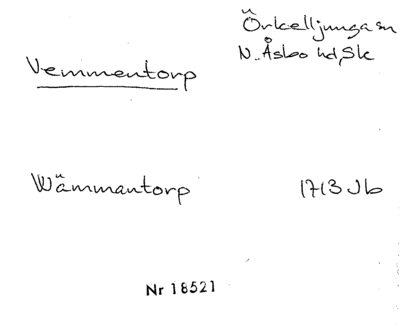 Örkelljunga sn
Vemmentorp
N. Åsbo hd, Sk
Wämmantorp 1713 Jb
Nr 18521